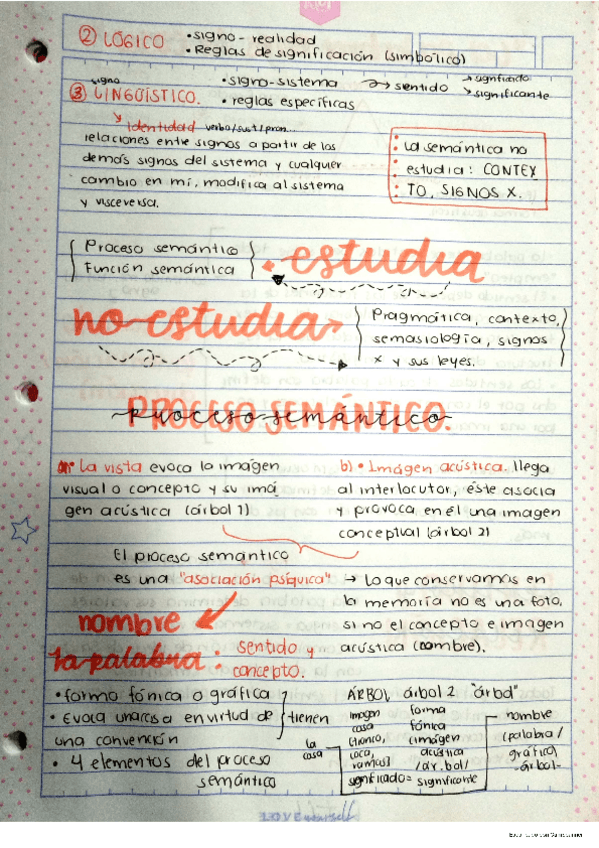 ② LÓGICO
• signo - realidad
• Reglas de significación (simbólico)
signo
③ LINGÜÍSTICO.
• signo-sistema → sentido → significado
↘ significante
• reglas específicas
↘ identidad verbo/sust/pron...
relaciones entre signos a partir de los
demás signos del sistema y cualquier
cambio en mí, modifica al sistema
y visceversa.
• La semántica no
• estudia: CONTEX
• TO, SIGNOS X.
Proceso semántico
Función semántica
• estudia
no estudia
Pragmática, contexto,
semasiología, signos
x y sus leyes.
PROCESO SEMÁNTICO.
Proceso semántico
a) • La vista evoca la imágen
visual o concepto y su imá
gen acústica (árbol 1)
b) • Imágen acústica. llega
al interlocutor, éste asocia
y provoca en él una imagen
conceptual (árbol 2)
El proceso semántico
es una "asociación psíquica" → Lo que conservamos en
la memoria no es una foto,
si no el concepto e imagen
acústica (nombre).
nombre
la palabra: sentido y
concepto.
• forma fónica o gráfica
• Evoca una cosa en virtud de
una convención
tienen
• 4 elementos del proceso
semántico
ÁRBOL árbol 2 "árbol"
la
cosa
imagen
cosa
(tronco,
ramas)
significado =
forma
fónica
(imágen
acústica
/ár.bol/
significante
nombre
(palabra/
gráfica)
-árbol-